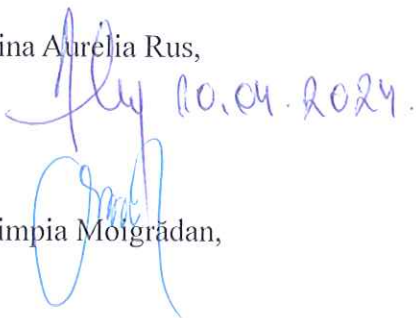 ina Aurelia Rus,
10.04.2024.
impia Moigrădan,